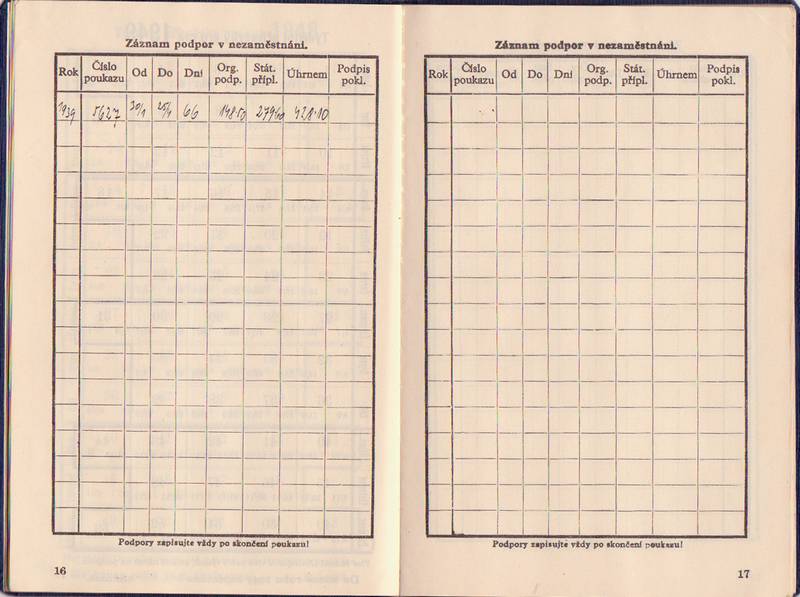 Záznam podpor v nezaměstnání.
Rok Číslo poukazu Od Do Dní Org. podp. Stát. přípl. Úhrnem Podpis pokl.
1939 5627 20/1 25/4 66 148·50 279·60 428·10
Podpory zapisujte vždy po skončení poukazu!
16
Záznam podpor v nezaměstnání.
Rok Číslo poukazu Od Do Dní Org. podp. Stát. přípl. Úhrnem Podpis pokl.
Podpory zapisujte vždy po skončení poukazu!
17